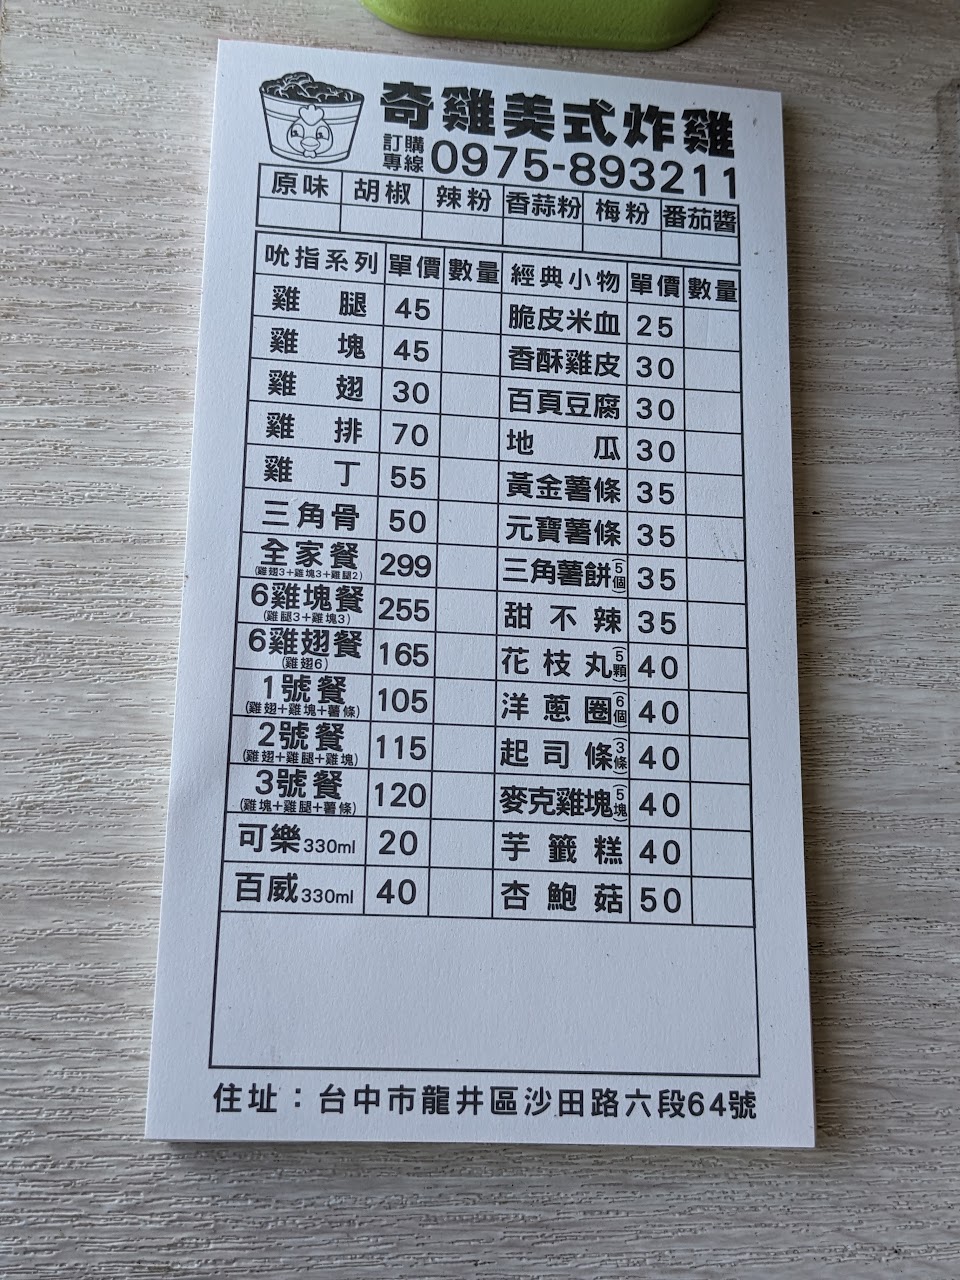 奇雞美式炸雞
訂購專線 0975-893211
原味 胡椒 辣粉 香蒜粉 梅粉 番茄醬
吮指系列 單價 數量 經典小物 單價 數量
雞腿 45 脆皮米血 25
雞塊 45 香酥雞皮 30
雞翅 30 百頁豆腐 30
雞排 70 地瓜 30
雞丁 55 黃金薯條 35
三角骨 50 元寶薯條 35
全家餐 (雞翅3+雞塊3+雞腿2) 299 三角薯餅(5個) 35
6雞塊餐 (雞腿3+雞塊3) 255 甜不辣 35
6雞翅餐 (雞翅6) 165 花枝丸(5顆) 40
1號餐 (雞翅+雞塊+薯條) 105 洋蔥圈(6個) 40
2號餐 (雞翅+雞腿+雞塊) 115 起司條(3條) 40
3號餐 (雞塊+雞腿+薯條) 120 麥克雞塊(5塊) 40
可樂330ml 20 芋籤糕 40
百威330ml 40 杏鮑菇 50
住址：台中市龍井區沙田路六段64號